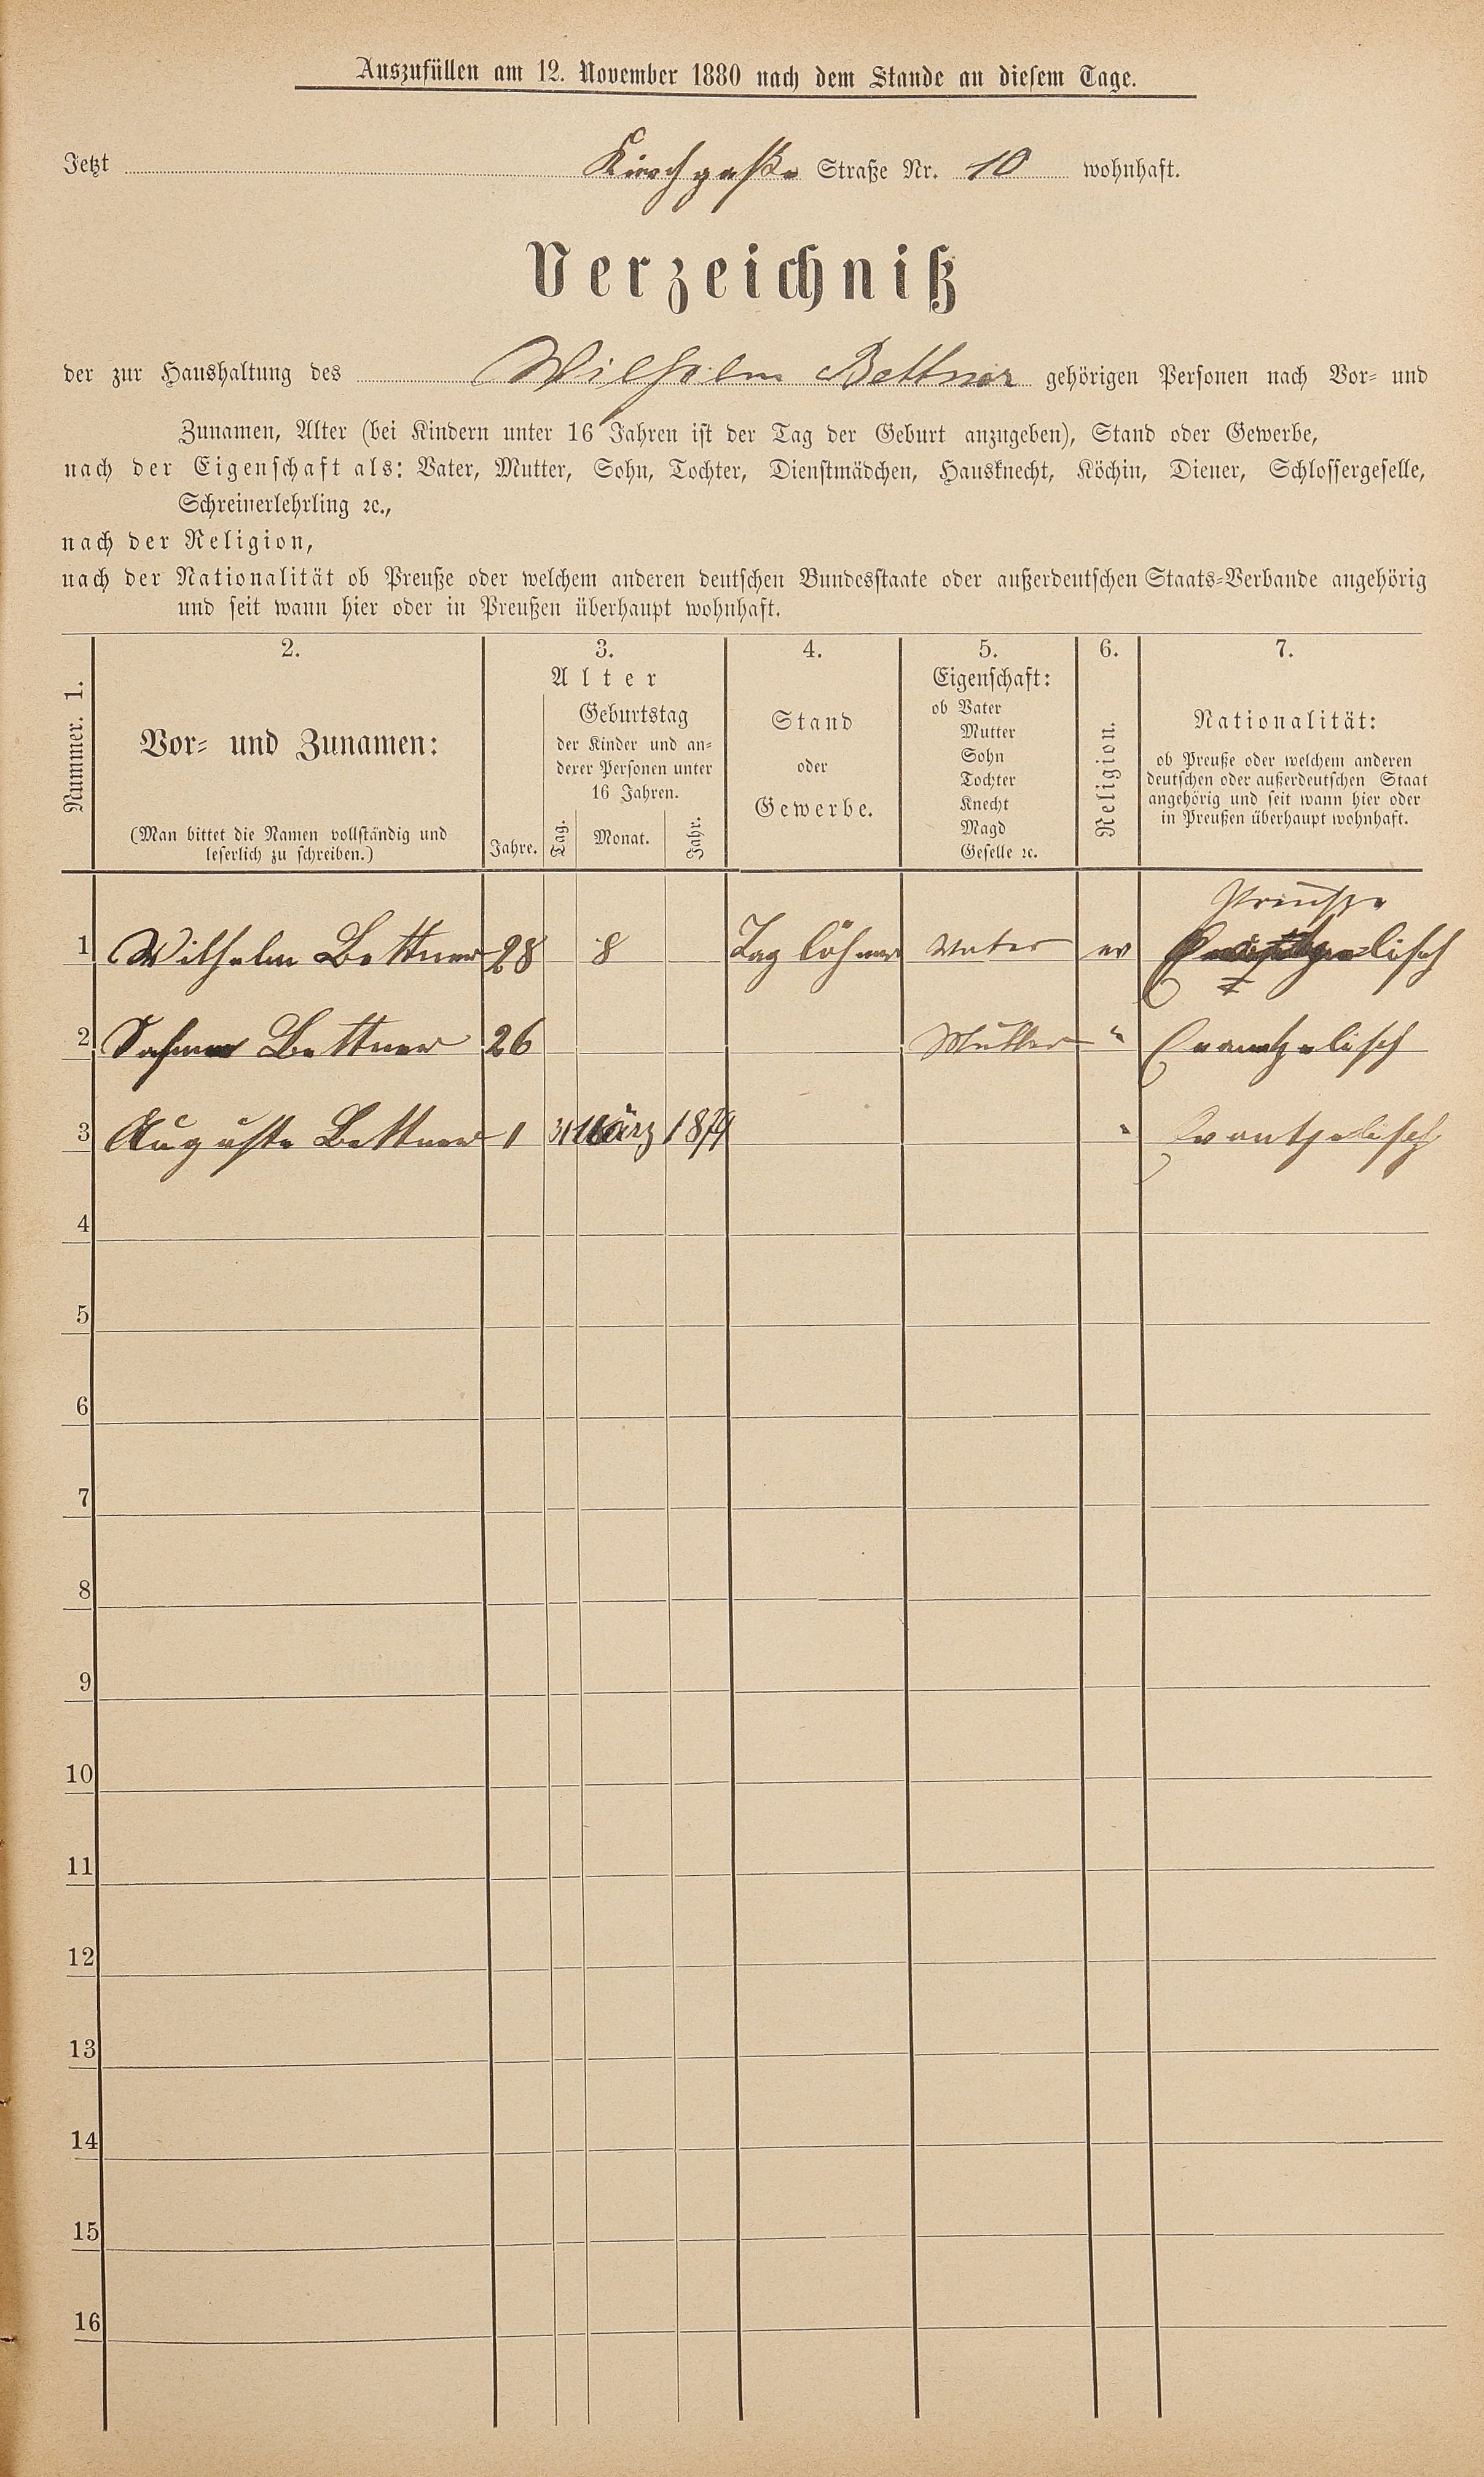 Auszufüllen am 12. November 1880 nach dem Stande an diesem Tage.
Jetzt Kirchgaße Straße Nr. 10 wohnhaft.
Verzeichniß
der zur Haushaltung des Wilhelm Bettner gehörigen Personen nach Vor- und
Zunamen, Alter (bei Kindern unter 16 Jahren ist der Tag der Geburt anzugeben), Stand oder Gewerbe,
nach der Eigenschaft als: Vater, Mutter, Sohn, Tochter, Dienstmädchen, Hausknecht, Köchin, Diener, Schlossergeselle,
Schreinerlehrling ꝛc.,
nach der Religion,
nach der Nationalität ob Preuße oder welchem anderen deutschen Bundesstaate oder außerdeutschen Staats-Verbande angehörig
und seit wann hier oder in Preußen überhaupt wohnhaft.
Nummer. 1.
2.
Vor- und Zunamen:
(Man bittet die Namen vollständig und
leserlich zu schreiben.)
3.
Alter
Jahre.
Geburtstag
der Kinder und an-
derer Personen unter
16 Jahren.
Tag.
Monat.
Jahr.
4.
Stand
oder
Gewerbe.
5.
Eigenschaft:
ob Vater
Mutter
Sohn
Tochter
Knecht
Magd
Geselle ꝛc.
6.
Religion.
7.
Nationalität:
ob Preuße oder welchem anderen
deutschen oder außerdeutschen Staat
angehörig und seit wann hier oder
in Preußen überhaupt wohnhaft.
Preuße
1 Wilhelm Bettner 28 8 Taglöhner Vater ev
2 Bettner 26 Mutter " Evangelisch
3 Auguste Bettner 1 31 März 1879 " Evangelisch
4
5
6
7
8
9
10
11
12
13
14
15
16